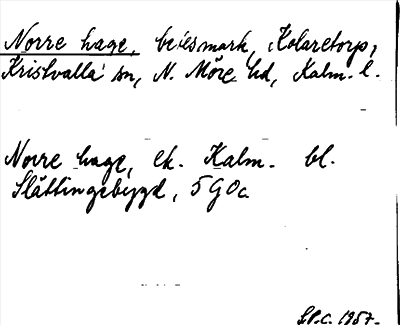 Norre hage, betesmark, Kolaretorp,
Kristvalla sn, N. Möre hd, Kalm. l.
Norre hage, ek. Kalm. bl.
Slättingebygd, 5 G O c.
S.P.C. 1957.